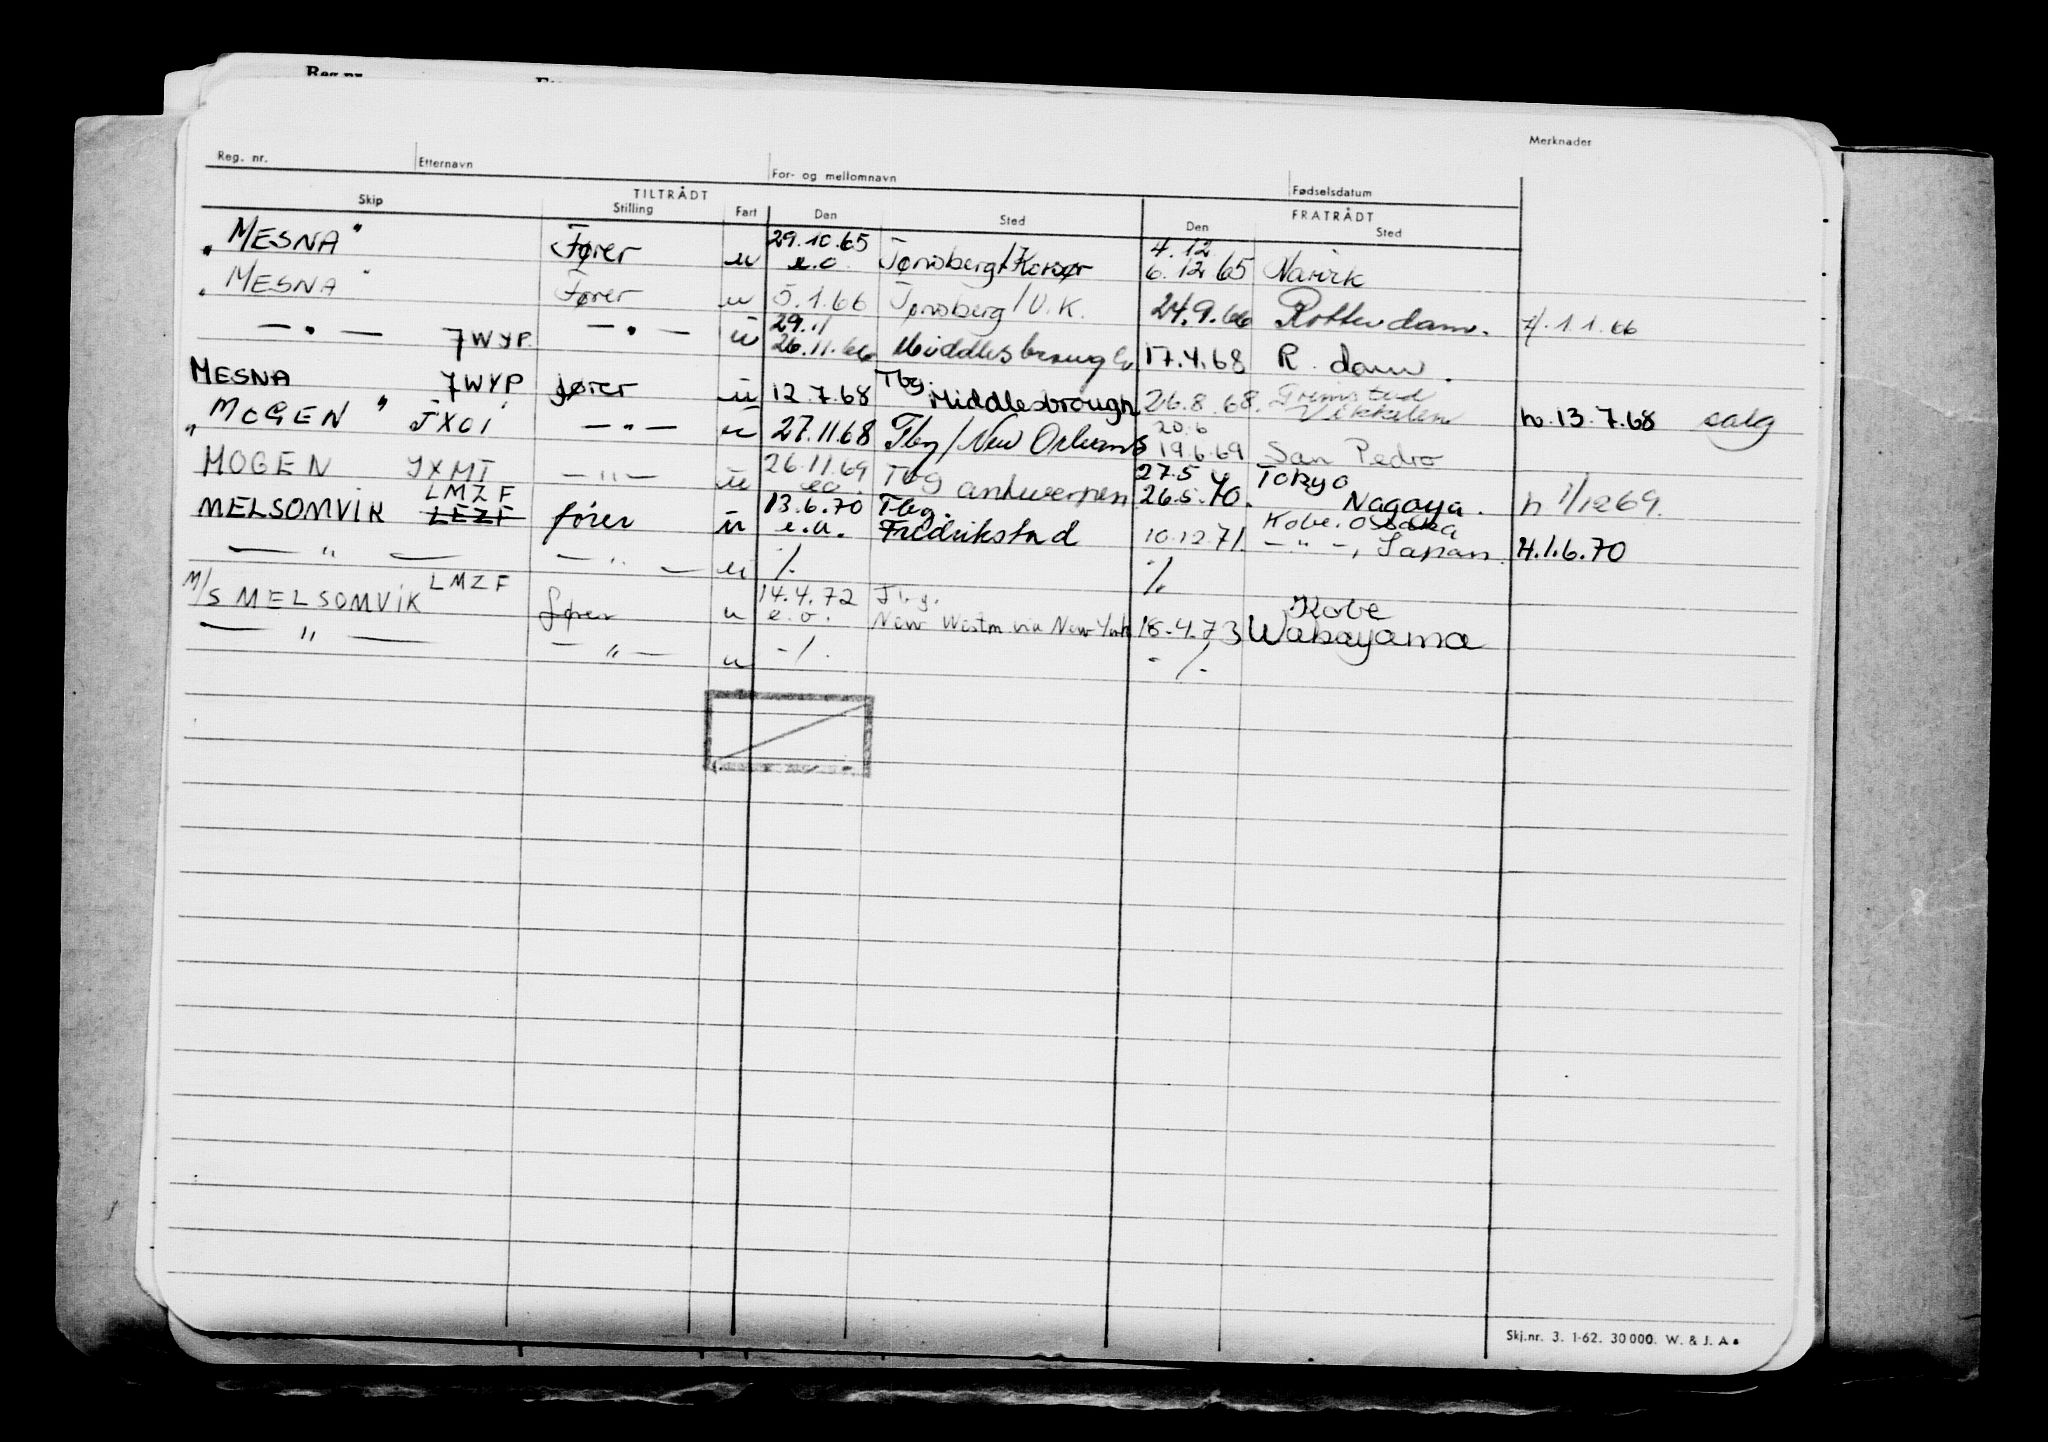 Reg. nr.
Reg. nr. Etternavn For- og mellomnavn Fødselsdatum Merknader
TILTRÅDT FRATRÅDT
Skip Stilling Fart Den Sted Den Sted
29.10.65 4.12
"MESNA" Fører u e.o. Tønsberg/Korsør 6.12.65 Narvik
"MESNA" Fører u 5.1.66 Tønsberg/U.K. 24.9.66 Rotterdam. H.1.1.66
29.11
— " — 7WYP — " — u 26.11.66 Middlesbrough 17.4.68 R.dam.
Tbg. Grimstad
MESNA 7WYP fører u 12.7.68 Middlesbrough 26.8.68. Vikkilen h.13.7.68 salg
20.6
"MOGEN" JXOI — " — u 27.11.68 Tbg/New Orleans 19.6.69 San Pedro
26.11.69 27.5 Tokyo
MOGEN JXMI — " — u e.o. Tbg antwerpen 26.5.70. Nagoya. h 1/1269.
LMZF 13.6.70 Tbg. Kobe. Osaka
MELSOMVIK LEZF fører u e.o. Fredrikstad 10.12.71. — " —, Japan. H.1.6.70
— " — — " — u ./. ./.
LMZF 14.4.72 Tbg. Kobe
M/S MELSOMVIK fører u e.o. New Westm via New York 18.4.73 Wakayama
— " — — " — u -/. -/.
Skj.nr. 3. 1-62. 30000. W. & J. A.